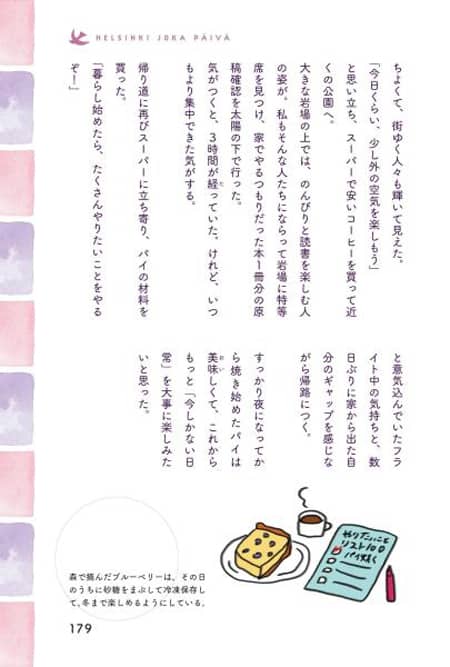 HELSINKI JOKA PÄIVÄ
ちよくて、街ゆく人々も輝いて見えた。
「今日くらい、少し外の空気を楽しもう」
と思い立ち、スーパーで安いコーヒーを買って近
くの公園へ。
大きな岩場の上では、のんびりと読書を楽しむ人
の姿が。私もそんな人たちにならって岩場に特等
席を見つけ、家でやるつもりだった本1冊分の原
稿確認を太陽の下で行った。
気がつくと、3時間が経っていた。けれど、いつ
もより集中できた気がする。
帰り道に再びスーパーに立ち寄り、パイの材料を
買った。
「暮らし始めたら、たくさんやりたいことをやる
ぞ！」
と意気込んでいたフラ
イト中の気持ちと、数
日ぶりに家から出た自
分のギャップを感じな
がら帰路につく。
すっかり夜になってか
ら焼き始めたパイは
美味しくて、これから
もっと「今しかない日
常」を大事に楽しみた
いと思った。
やりたいこと
リスト100
パイ焼く
森で摘んだブルーベリーは、その日
のうちに砂糖をまぶして冷凍保存し
て、冬まで楽しめるようにしている。
179